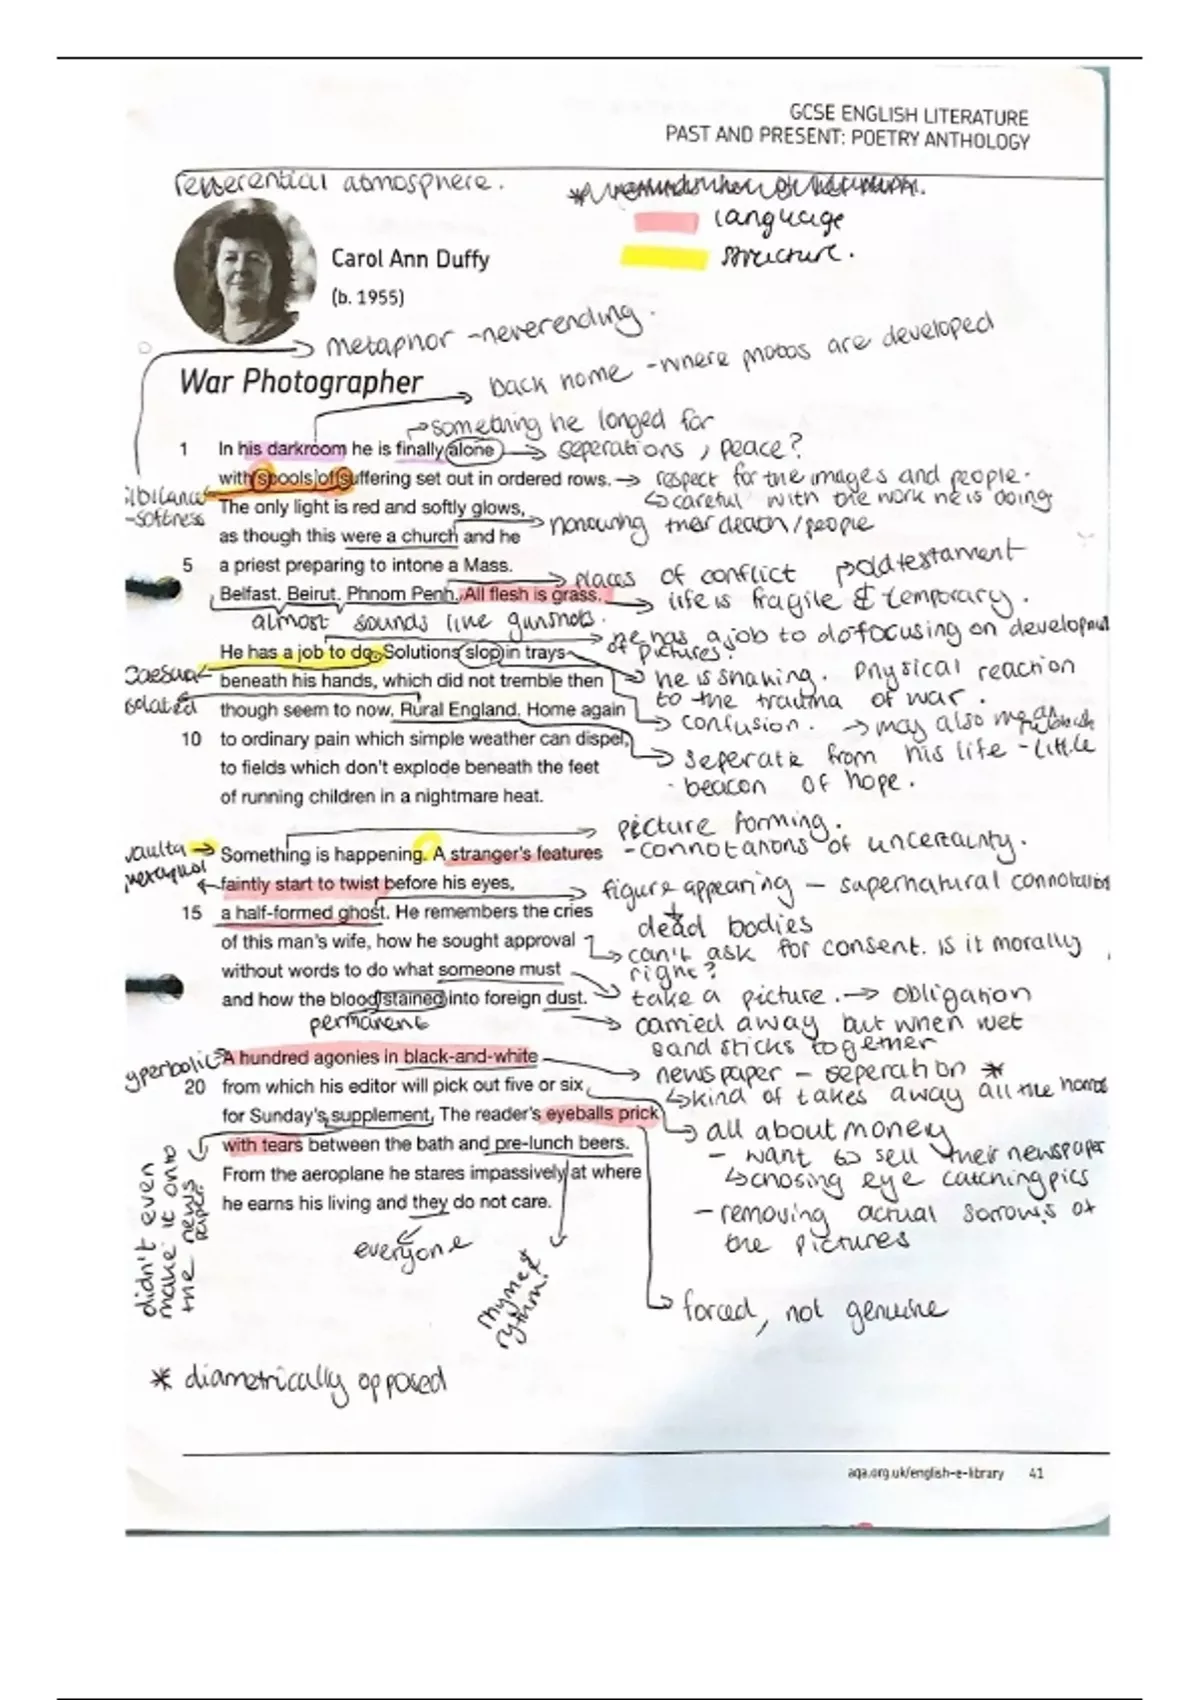 GCSE ENGLISH LITERATURE
PAST AND PRESENT: POETRY ANTHOLOGY
reverential atmosphere.
language
structure.
Carol Ann Duffy
(b. 1955)
metaphor - neverending.
back home - where photos are developed
War Photographer
something he longed for
1 In his darkroom he is finally alone
seperations, peace?
with spools of suffering set out in ordered rows.
respect for the images and people.
careful with the work he is doing
ibilance
- softness
The only light is red and softly glows,
as though this were a church and he
honouring their death/people
5 a priest preparing to intone a Mass.
places of conflict
old testament
Belfast. Beirut. Phnom Penh. All flesh is grass.
life is fragile & temporary.
almost sounds like gunshots.
he has a job to do - focusing on development
of pictures.
He has a job to do. Solutions slop in trays
Caesura
beneath his hands, which did not tremble then
he is shaking. Physical reaction
to the trauma of war.
isolated
though seem to now. Rural England. Home again
confusion.
may also mean
10 to ordinary pain which simple weather can dispel,
seperate from his life - little
beacon of hope.
to fields which don't explode beneath the feet
of running children in a nightmare heat.
picture forming.
- connotations of uncertainty.
Something is happening. A stranger's features
faintly start to twist before his eyes,
figure appearing - supernatural connotations
dead bodies
15 a half-formed ghost. He remembers the cries
of this man's wife, how he sought approval
can't ask for consent. Is it morally
right?
without words to do what someone must
take a picture. → obligation
and how the blood stained into foreign dust.
permanent
carried away but when wet
sand sticks together
yperbolic
A hundred agonies in black-and-white
newspaper - seperation *
kind of takes away all the horror
20 from which his editor will pick out five or six
for Sunday's supplement. The reader's eyeballs prick
all about money
- want to sell their newspaper
chosing eye catching pics
- removing actual sorrows of
the pictures
with tears between the bath and pre-lunch beers.
From the aeroplane he stares impassively at where
he earns his living and they do not care.
didn't even
make it onto
the news
paper.
everyone
rhyme &
rythm!
forced, not genuine
* diametrically opposed
aqa.org.uk/english-e-library 41